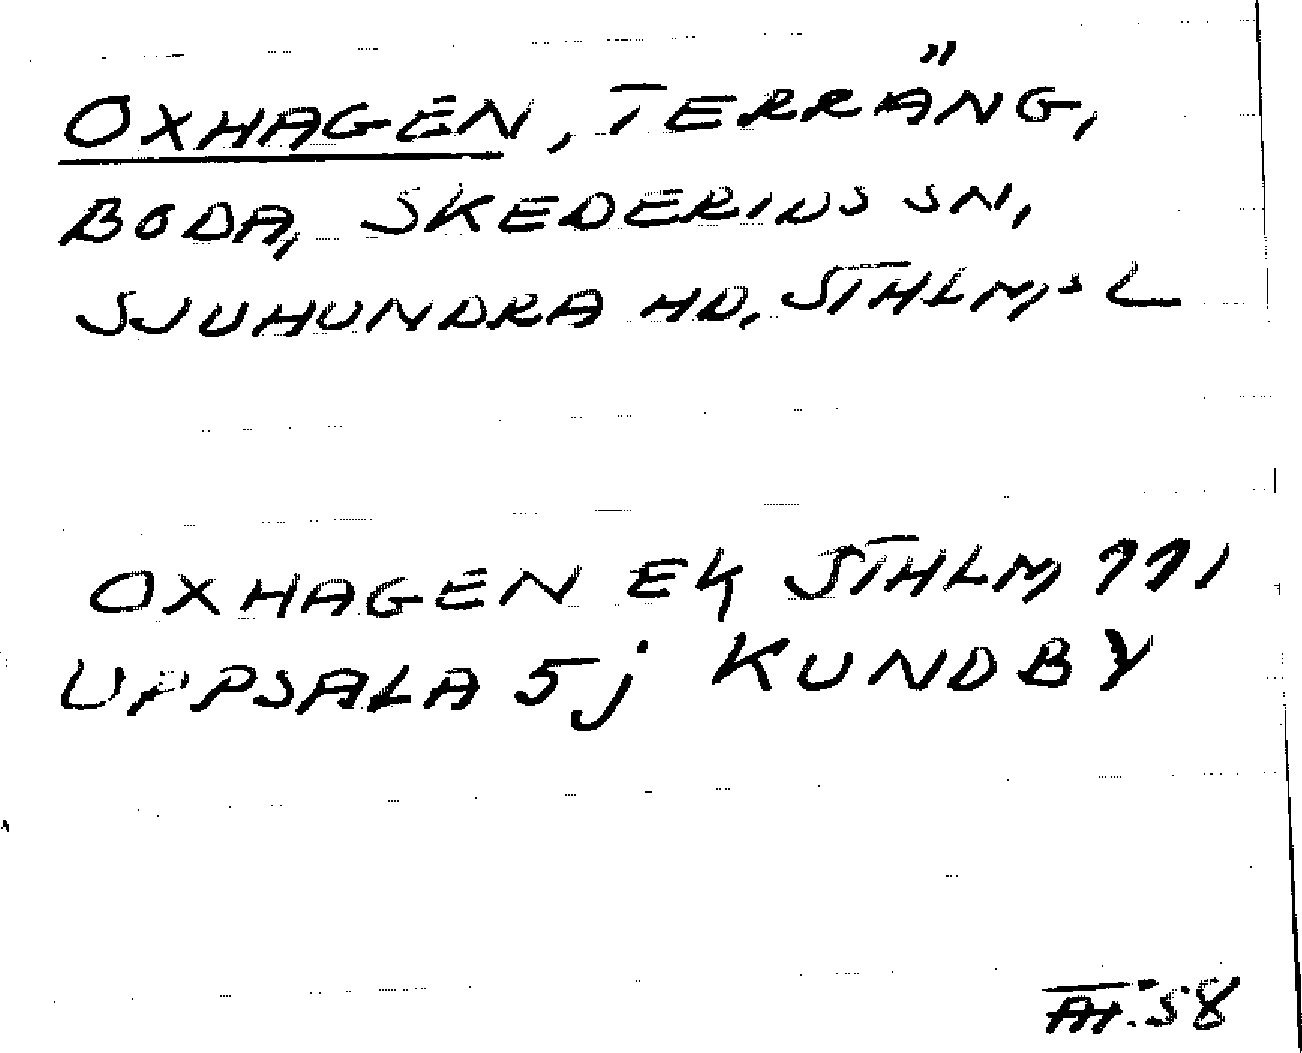 OXHAGEN, TERRÄNG,
BODA, SKEDERIDS SN,
SJUHUNDRA HD, STHLM,S L
OXHAGEN EK STHLM 771
UPPSALA 5j KUNDBY
58